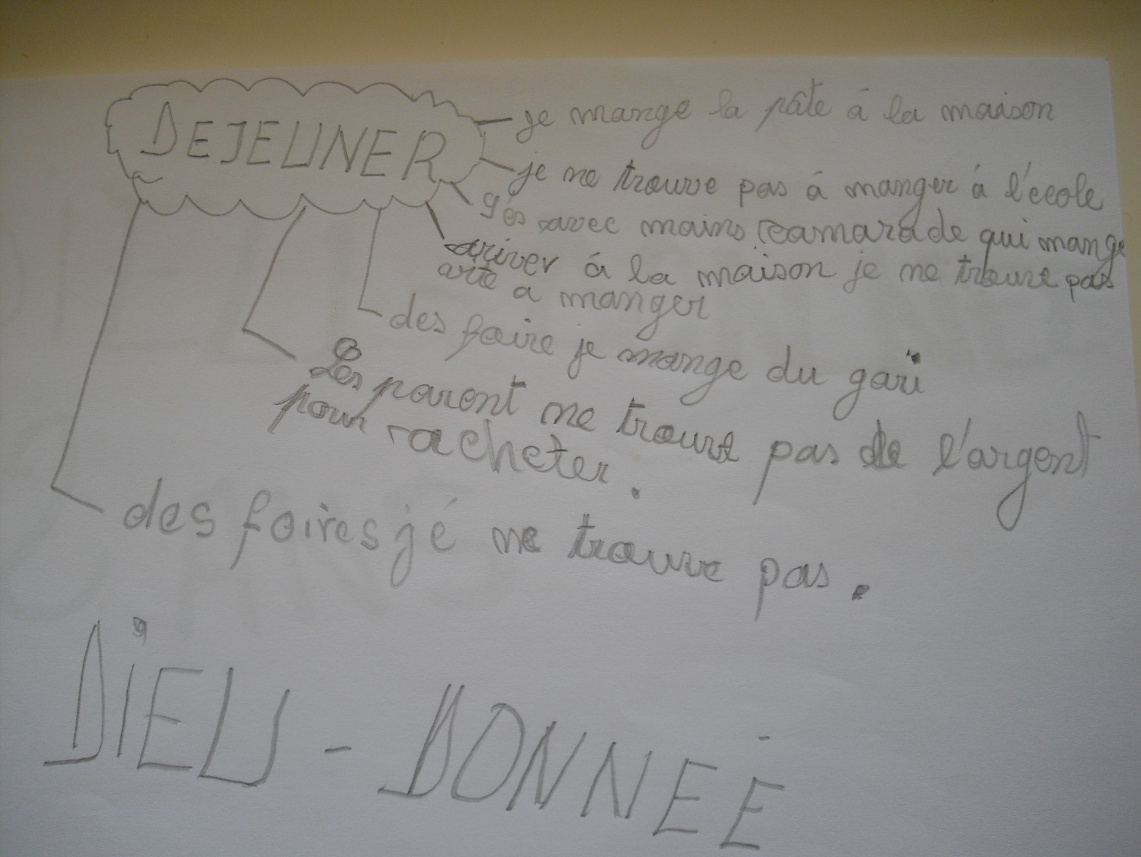 DEJEUNER
je mange la pâte à la maison
je ne trouve pas à manger à l'école
gés avec mains camarade qui mange
ariver à la maison je ne trouve pas
arte a manger
des faire je mange du gari
Les parent ne trouve pas de l'argent
pour racheter.
des foires jé ne trouve pas.
DiEU - DONNEÉ